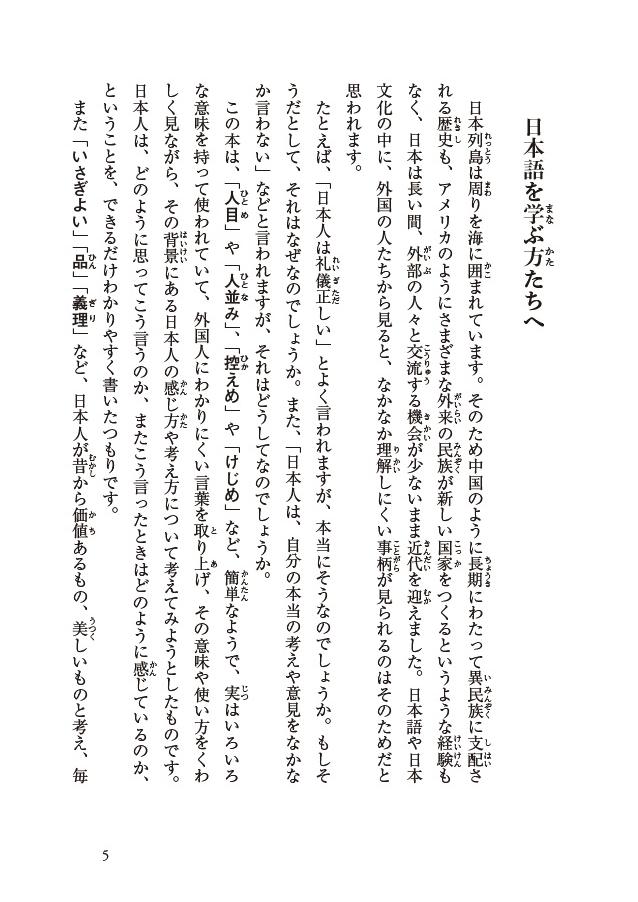 日本語を学ぶ方たちへ
日本列島は周りを海に囲まれています。そのため中国のように長期にわたって異民族に支配さ
れる歴史も、アメリカのようにさまざまな外来の民族が新しい国家をつくるというような経験も
なく、日本は長い間、外部の人々と交流する機会が少ないまま近代を迎えました。日本語や日本
文化の中に、外国の人たちから見ると、なかなか理解しにくい事柄が見られるのはそのためだと
思われます。
たとえば、「日本人は礼儀正しい」とよく言われますが、本当にそうなのでしょうか。もしそ
うだとして、それはなぜなのでしょうか。また、「日本人は、自分の本当の考えや意見をなかな
か言わない」などと言われますが、それはどうしてなのでしょうか。
この本は、「人目」や「人並み」、「控えめ」や「けじめ」など、簡単なようで、実はいろいろ
な意味を持って使われていて、外国人にわかりにくい言葉を取り上げ、その意味や使い方をくわ
しく見ながら、その背景にある日本人の感じ方や考え方について考えてみようとしたものです。
日本人は、どのように思ってこう言うのか、またこう言ったときはどのように感じているのか、
ということを、できるだけわかりやすく書いたつもりです。
また「いさぎよい」「品」「義理」など、日本人が昔から価値あるもの、美しいものと考え、毎
5